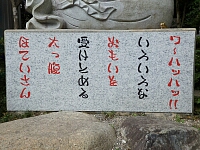 ワーハッハッハ!!
いろいろな
おもいを
受けとめる
太っ腹
ほていさん